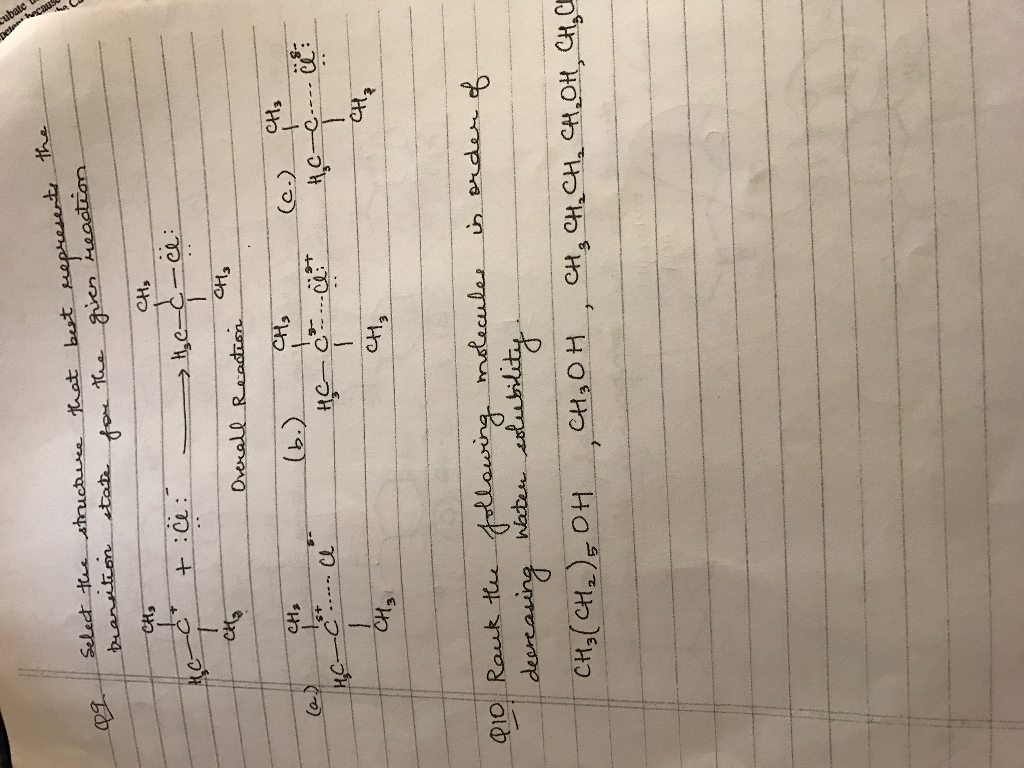 Q9 Select the structure that best represents the
transition state for the given reaction
CH₃ CH₃
H₃C—C⁺ + :C̈l:⁻ ⟶ H₃C—C—C̈l:
CH₃ CH₃
Overall Reaction
(a.) CH₃ (b.) CH₃ (c.) CH₃
H₃C—C^δ+ ...... Cl^δ- H₃C—C^δ- ...... C̈l:^δ+ H₃C—C ..... C̈l:^δ-
CH₃ CH₃ CH₃
Q10. Rank the following molecules in order of
decreasing Water solubility.
CH₃(CH₂)₅OH , CH₃OH , CH₃CH₂CH₂CH₂OH, CH₃Cl